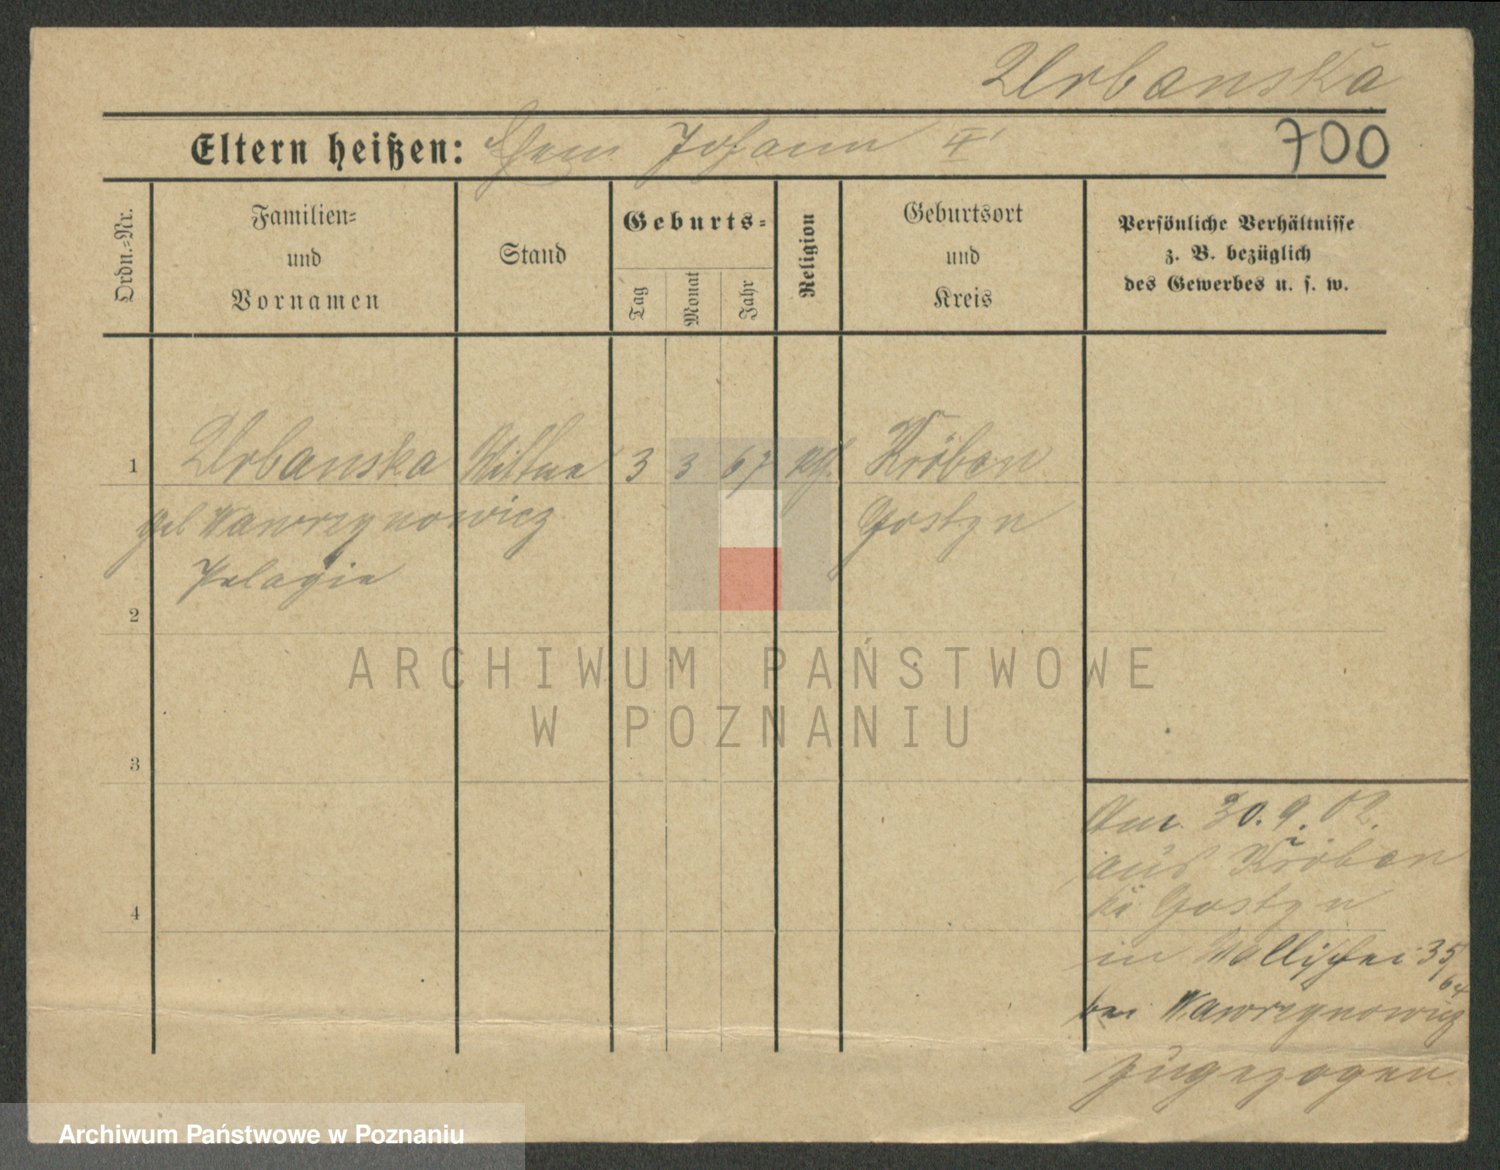 Urbanska
Eltern heißen: Ehem. Johann
700
Ordn.-Nr.
Familien-
und
Vornamen
Stand
Geburts-
Tag
Monat
Jahr
Religion
Geburtsort
und
Kreis
Persönliche Verhältnisse
z. B. bezüglich
des Gewerbes u. s. w.
1 Urbanska Wittwe 3 3 67 kth. Kröben
geb Wawrzynowicz Gostyn
Pelagie
2
ARCHIWUM PAŃSTWOWE
W POZNANIU
3
Am 30. 9. 02.
aus Kröben
4
Kr Gostyn
in Wallischei 35/64
bei Wawrzynowicz
zugezogen
Archiwum Państwowe w Poznaniu